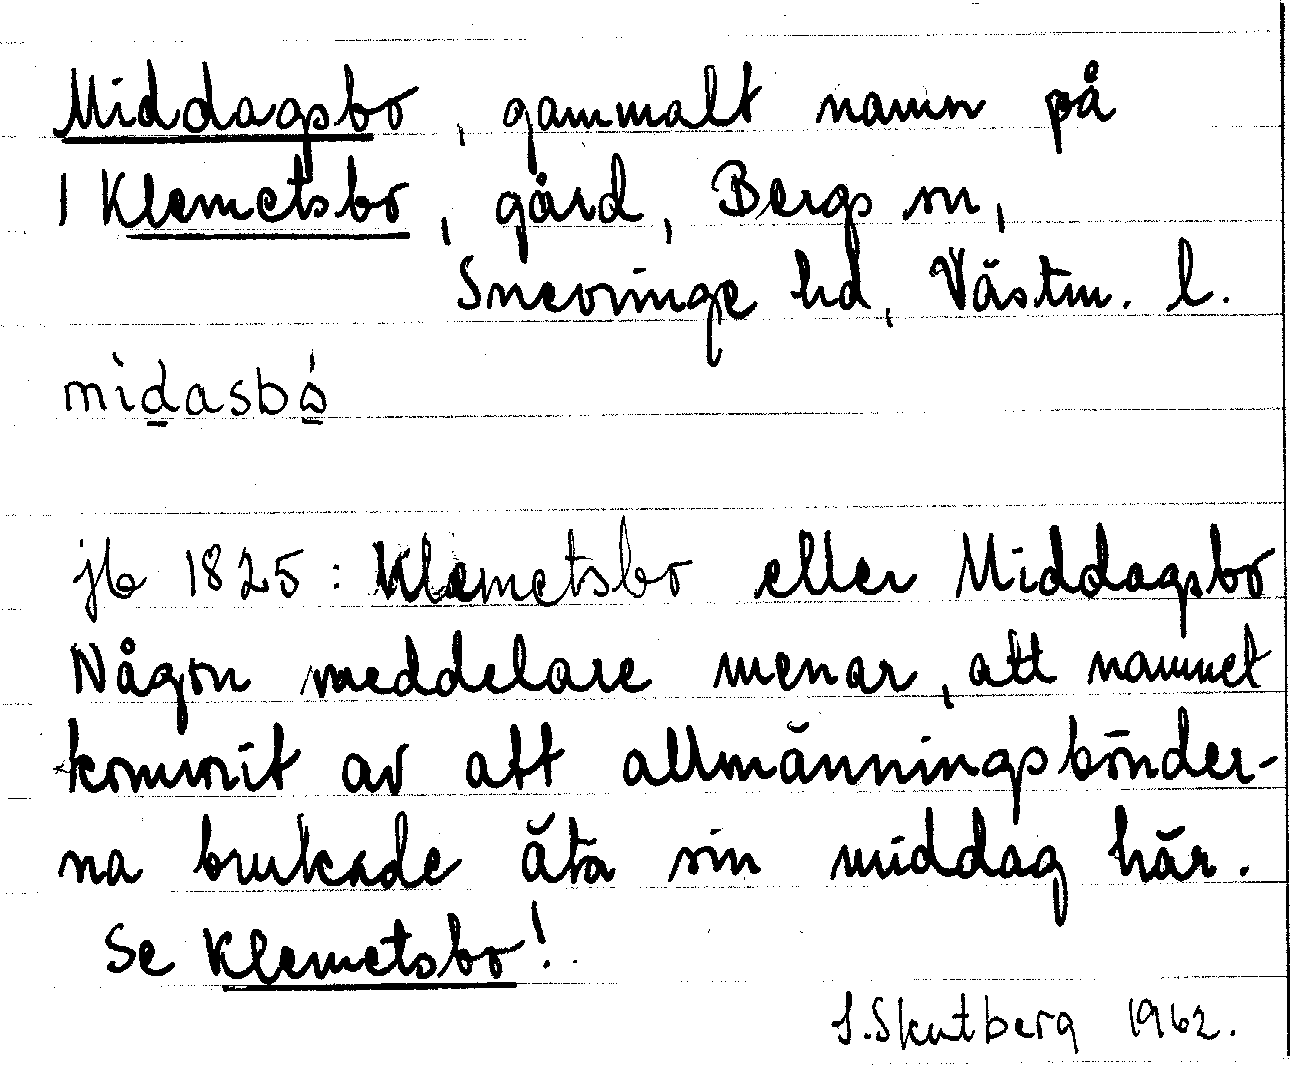 Middagsbo, gammalt namn på
1 Klemetsbo, gård, Bergs sn,
Snevringe hd, Västm. l.
midasbo
jb 1825: Klemetsbo eller Middagsbo
Någon meddelare menar, att namnet
kommit av att allmänningsbönder-
na brukade äta sin middag här.
Se Klemetsbo!
S. Skutberg 1962.